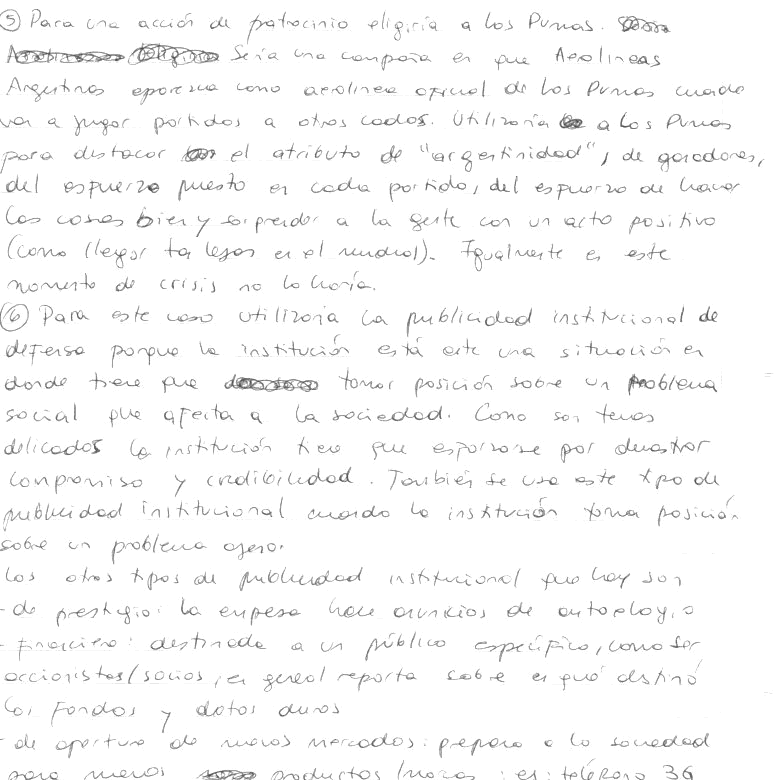 ⑤ Para una acción de patrocinio eligiría a Los Pumas.
Sería una campaña en que Aerolineas
Argentinas aparezca como aerolinea oficial de Los Pumas cuando
van a jugar partidos a otros lados. Utilizaría a Los Pumas
para destacar el atributo de "argentinidad", de ganadores,
del esfuerzo puesto en cada partido, del esfuerzo de hacer
las cosas bien y sorprender a la gente con un acto positivo
(como llegar tan lejos en el mundial). Igualmente en este
momento de crisis no lo haría.
⑥ Para este caso utilizaría la publicidad institucional de
defensa porque la institución está ante una situación en
donde tiene que tomar posición sobre un problema
social que afecta a la sociedad. Como son temas
delicados la institución tiene que esforzarse por demostrar
compromiso y credibilidad. También se usa este tipo de
publicidad institucional cuando la institución toma posición
sobre un problema ajeno.
Los otros tipos de publicidad institucional que hay son
- de prestigio: la empresa hace anuncios de autoelogio
- financiera: destinada a un público específico, como ser
accionistas/socios, en general reporta sobre en qué destinó
los fondos y datos duros
- de apertura de nuevos mercados: prepara a la sociedad
para nuevos productos/marcas: ej: teléfono 3G